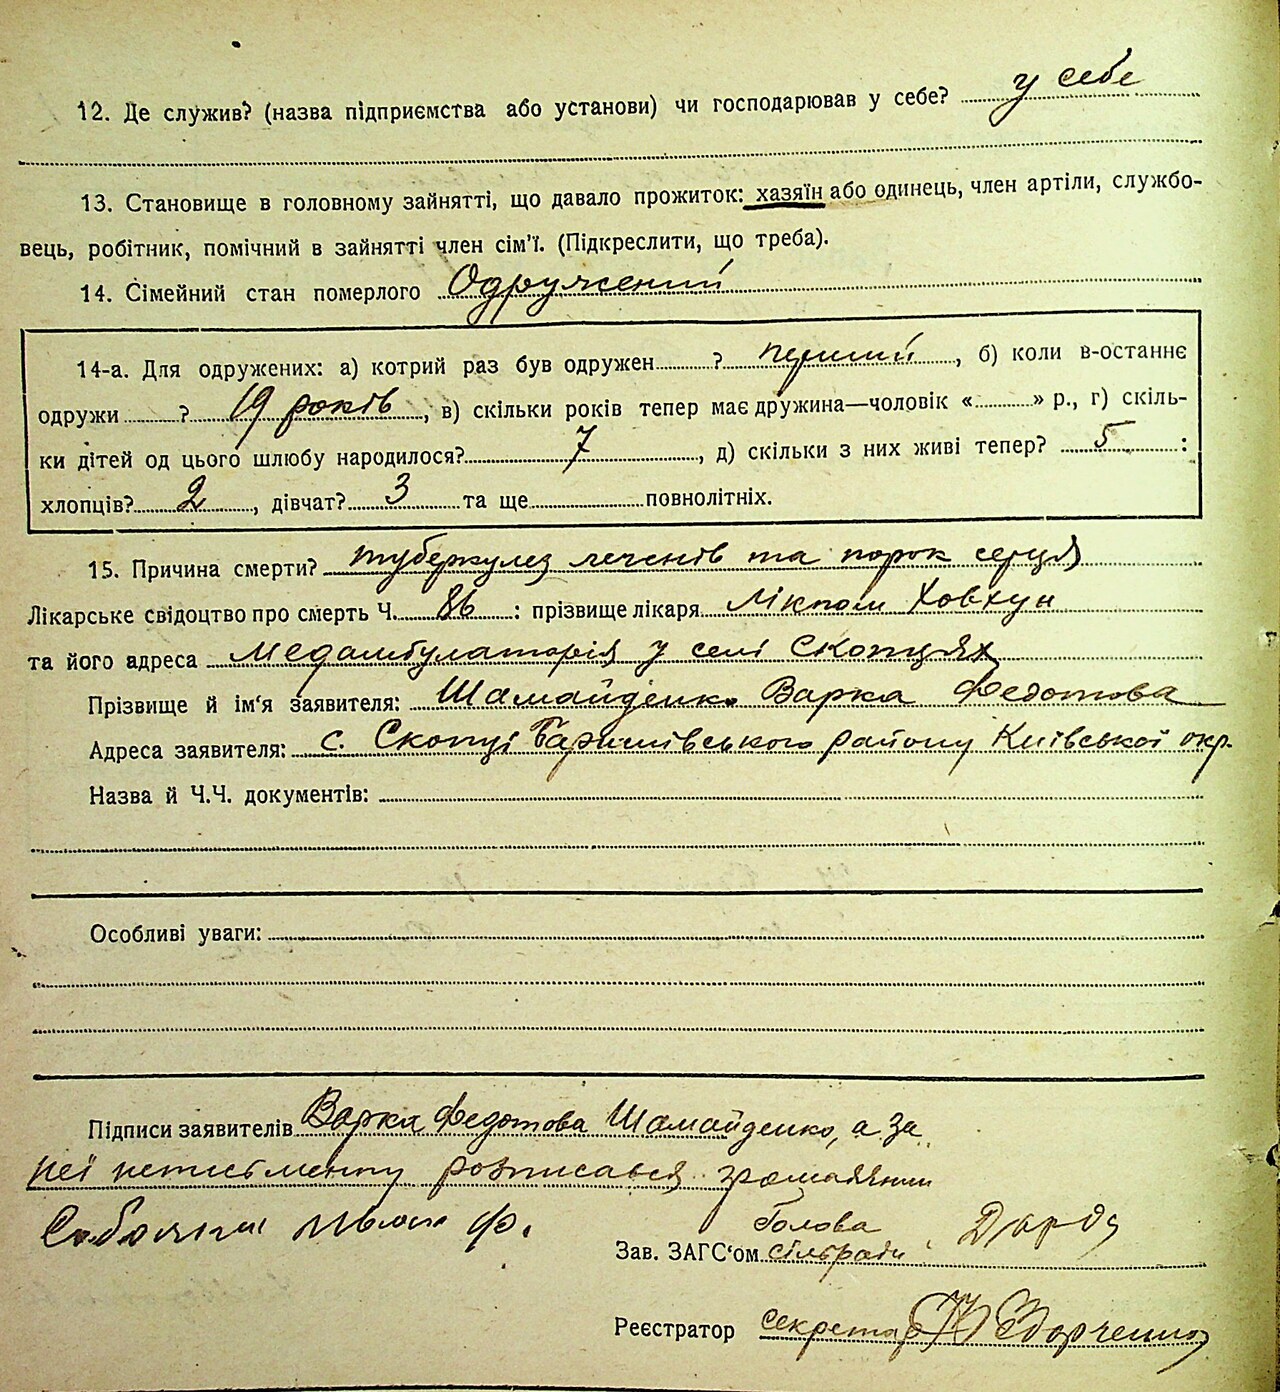 12. Де служив? (назва підприємства або установи) чи господарював у себе? у себе
13. Становище в головному зайнятті, що давало прожиток: хазяїн або одинець, член артіли, службо-
вець, робітник, помічний в зайнятті член сім'ї. (Підкреслити, що треба).
14. Сімейний стан померлого Одружений
14-а. Для одружених: а) котрий раз був одружен......? перший, б) коли в-останнє
одружи......? 19 років, в) скільки років тепер має дружина—чоловік «......» р., г) скіль-
ки дітей од цього шлюбу народилося? 7, д) скільки з них живі тепер? 5 :
хлопців? 2, дівчат? 3 та ще...... повнолітніх.
15. Причина смерти? туберкулез легенів та порок серця
Лікарське свідоцтво про смерть Ч. 86 : прізвище лікаря Лікпом Ховхун
та його адреса Медамбулаторія у селі Скопцях
Прізвище й ім'я заявителя: Шамайденко Варка Федотова
Адреса заявителя: с. Скопці Баришівського району Київської окр.
Назва й Ч.Ч. документів:
Особливі уваги:
Підписи заявителів Варка Федотова Шамайденко, а за
неї неписьменну розписався громадянин
Ф.
Голова
Зав. ЗАГС'ом сільради
Реєстратор секретар